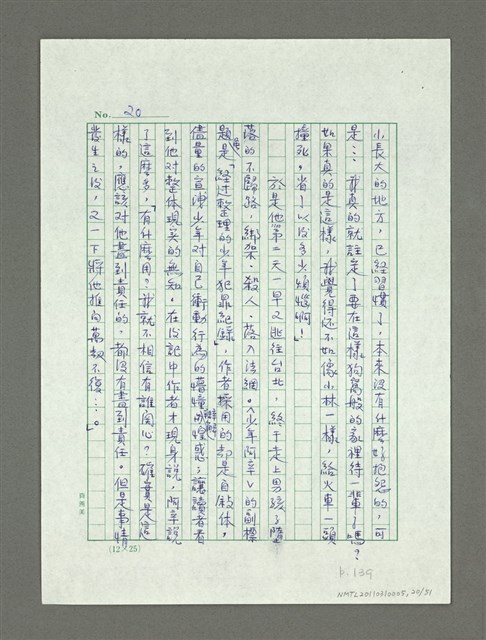 No. 20
小長大的地方，已經習慣了，本來沒有什麼好抱怨的，可
是…我真的就註定了要在這樣狗窩般的家裡待一輩子嗎？
如果真的是這樣，我覺得還不如像小林一樣，給火車一頭
撞死，省了以後多少煩惱啊！」
於是他第二天一早又逃往台北，終于走上男孩子墮
落的不歸路，綁架、殺人、落入法網。〈少年阿辛〉的副標
題是「經过整理的少年犯罪紀錄」，作者採用的却是自敘体，
儘量的宣洩少年对自己衝動行為的懵懂和惶惑；讓讀者看
到他对整体現实的無知。在后記中作者才現身説，阿辛説
了這麼多，「有什麼用？我就不相信有誰関心？確實是這
樣的，應該对他盡到責任的，都沒有盡到責任。但是事情
發生之後，又一下將他推向萬劫不復…。」
(12×25)
p.139
NMTL20110310005,20/51